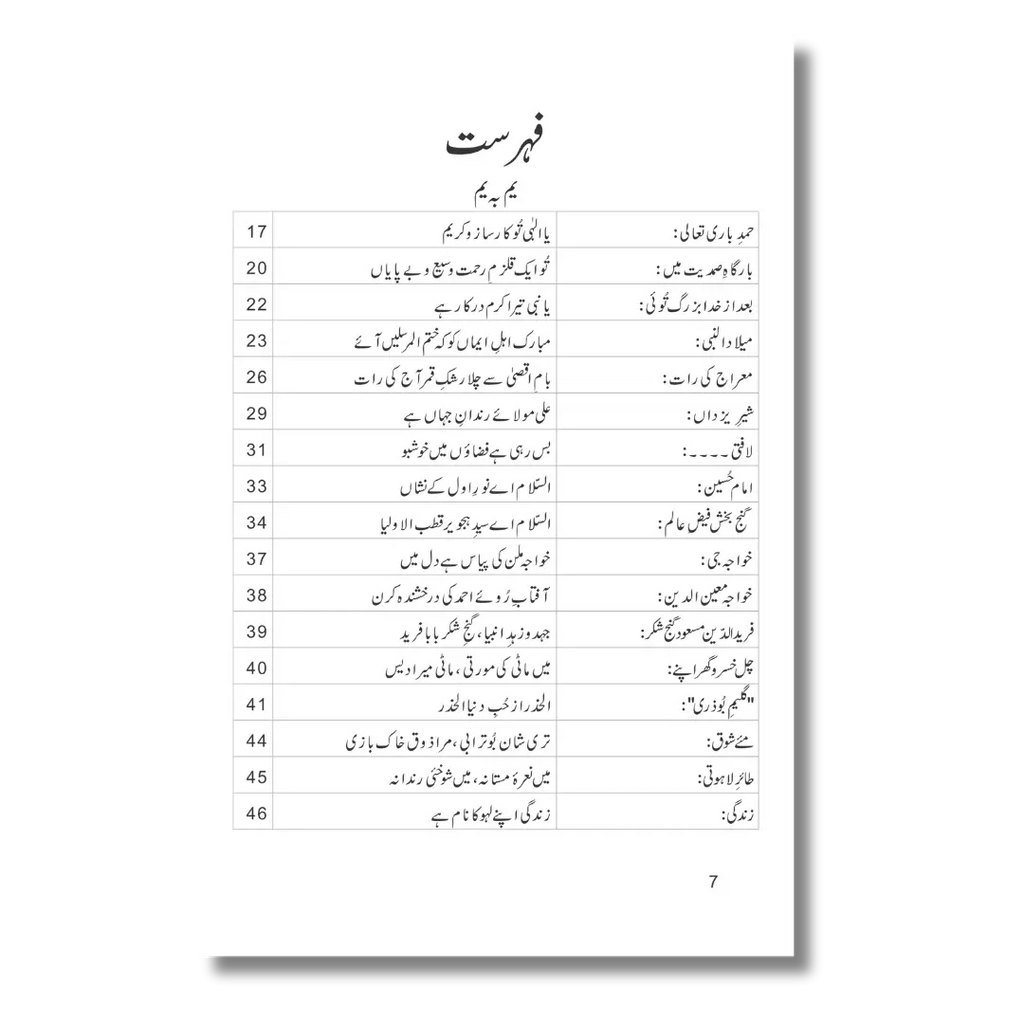 فہرست
یم بہ یم
حمدِ باری تعالی: یا الہٰی تُو کارساز و کریم 17
بارگاہِ صمدیت میں: تُو ایک قلزمِ رحمت وسیع و بے پایاں 20
بعد از خدا بزرگ تُوئی: یا نبی تیرا کرم درکار ہے 22
میلاد النبی: مبارک اہلِ ایماں کو کہ ختم المرسلیں آئے 23
معراج کی رات: بامِ اقصیٰ سے چلا رشکِ قمر آج کی رات 26
شیرِ یزداں: علی مولائے رندانِ جہاں ہے 29
لافتی ۔۔۔۔: بس رہی ہے فضاؤں میں خوشبو 31
امام حُسین: السّلام اے نورِ اول کے نشاں 33
گنج بخش فیضِ عالم: السّلام اے سیدِ ہجویر قطب الاولیا 34
خواجہ جی: خواجہ ملن کی پیاس ہے دل میں 37
خواجہ معین الدین: آفتابِ رُوئے احمد کی درخشندہ کرن 38
فرید الدّین مسعود گنج شکر: جہد و زہدِ انبیا، گنجِ شکر بابا فرید 39
چل خسرو گھر اپنے: میں ماٹی کی مورتی، ماٹی میرا دیس 40
"گلیمِ بُوذری": الحذر از حُبِ دنیا الحذر 41
مئے شوق: تری شان بُوترابی، مرا ذوق خاک بازی 44
طائرِ لاہوتی: میں نعرۂ مستانہ، میں شوخئی رندانہ 45
زندگی: زندگی اپنے لہو کا نام ہے 46
7